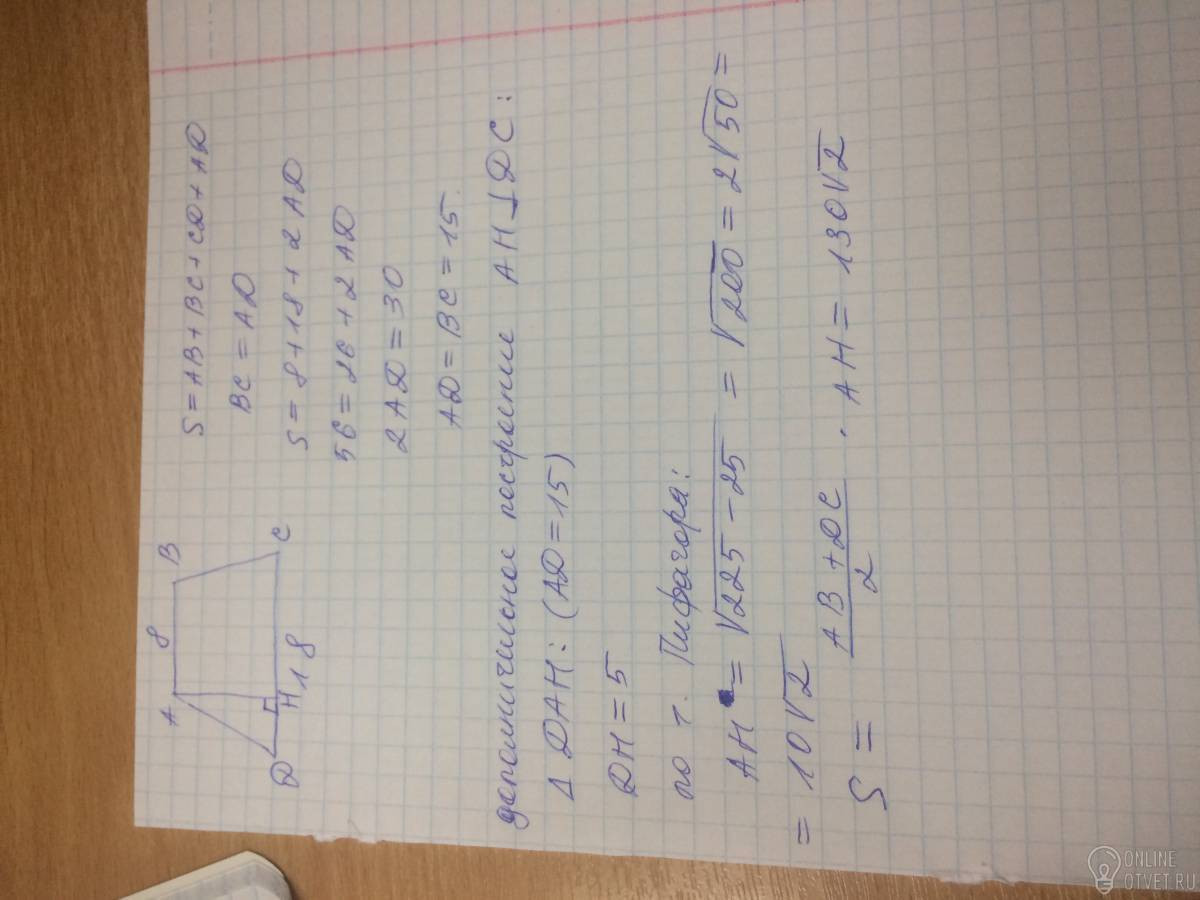 A 8 B
D H 18 C
S = AB + BC + CD + AD
BC = AD
S = 8 + 18 + 2AD
56 = 26 + 2AD
2AD = 30
AD = BC = 15.
дополнительное построение AH ⊥ DC:
Δ DAH: (AD = 15)
DH = 5
по т. Пифагора:
AH = √225 - 25 = √200 = 2√50 =
= 10√2
S = AB + DC / 2 · AH = 130√2
ONLINE
OTVET.RU